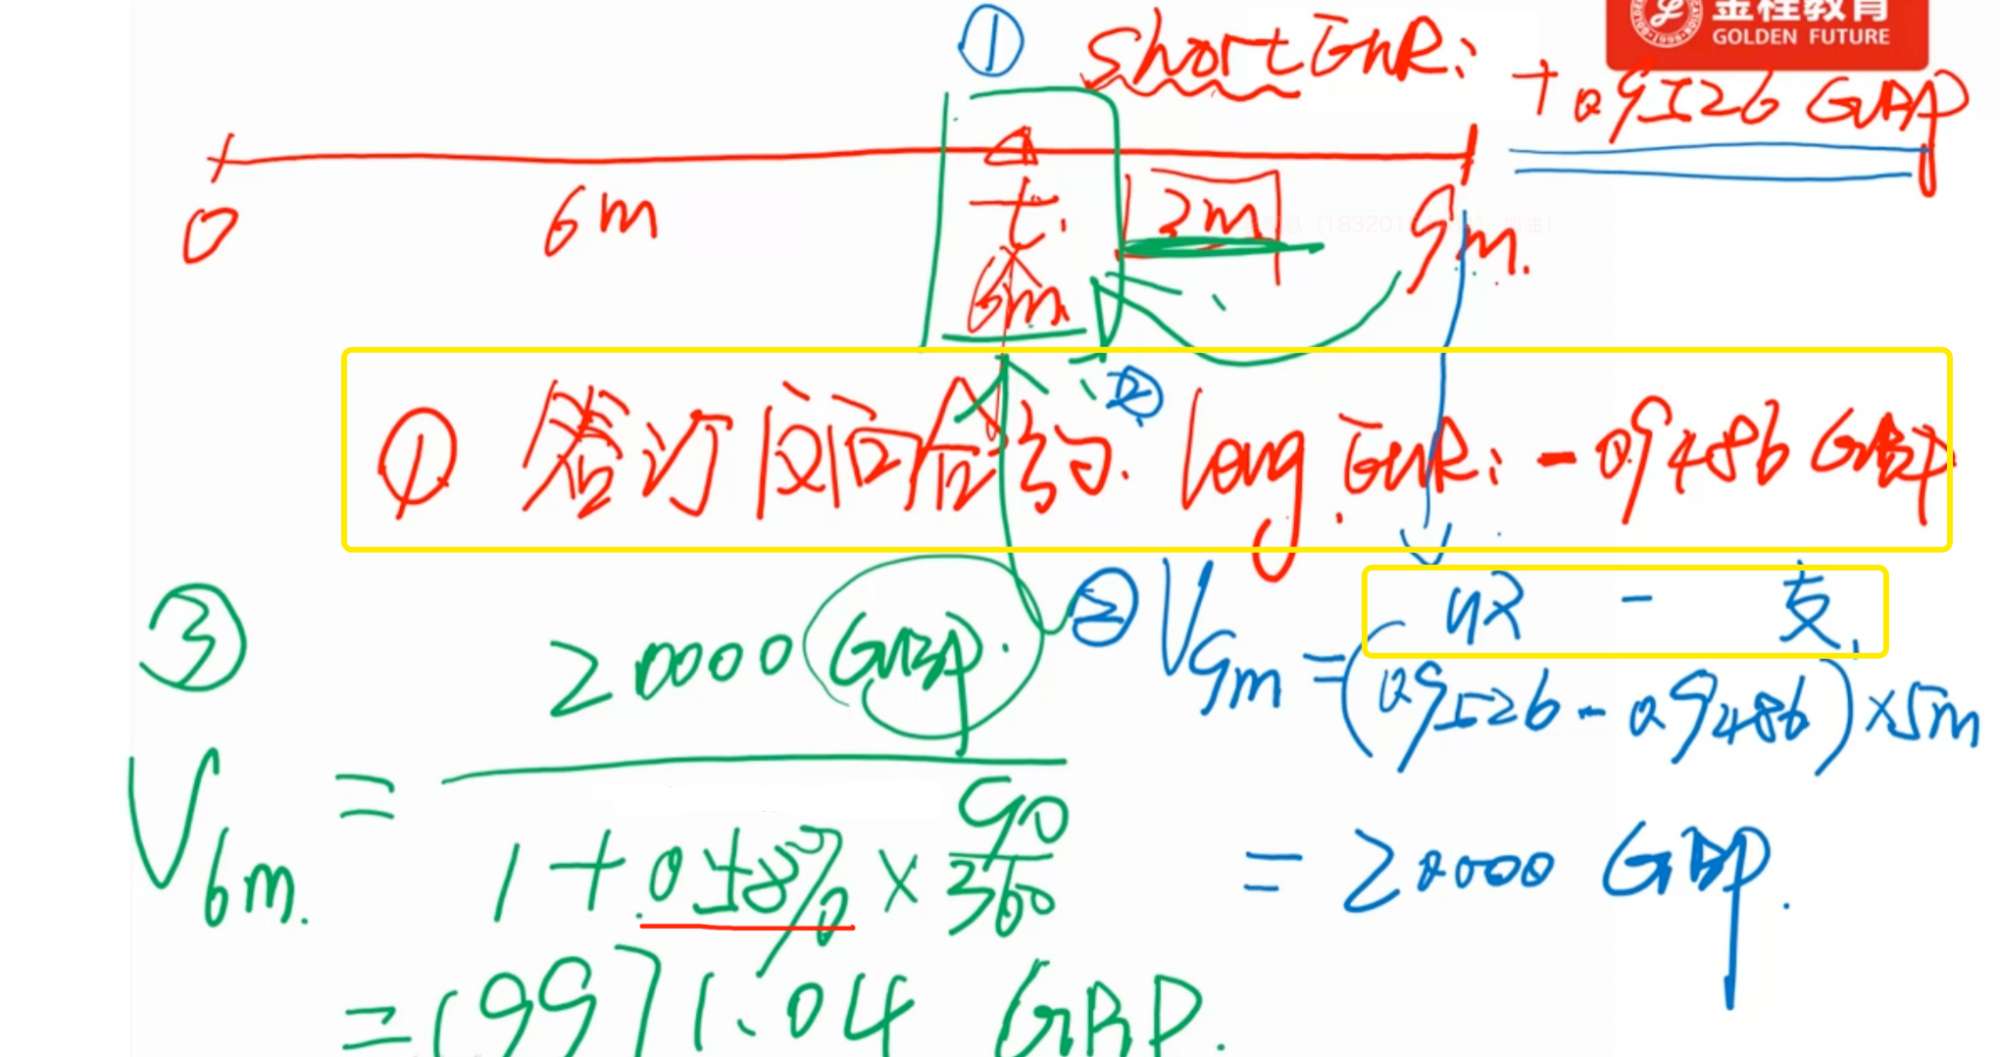 金程教育
GOLDEN FUTURE
① Short EUR: +0.9526 GBP
0 6m t. 6m 3m 9m.
① 签订反向合约. ② long EUR: -0.9486 GBP
收 - 支
② V9m = (0.9526 - 0.9486) × 5m
= 20000 GBP.
③ V6m. = 20000 GBP.
1 + 0.58% × 90/360
= 19971.04 GBP.